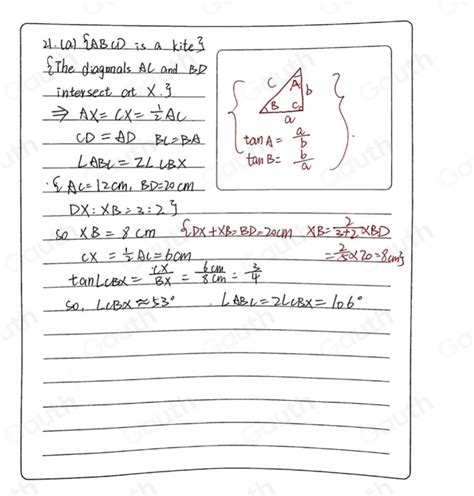 21. (a) {ABCD is a kite}
{The diagonals AC and BD
intersect at X.}
⇒ AX = CX = 1/2 AC
CD = AD BC = BA
∠ABC = 2∠CBX
· {AC = 12 cm, BD = 20 cm
DX : XB = 3 : 2}
so XB = 8 cm {DX + XB = BD = 20cm XB = 2/(3+2) × BD
= 2/5 × 20 = 8cm}
CX = 1/2 AC = 6cm
tan∠CBX = CX/BX = 6cm/8cm = 3/4
So, ∠CBX ≈ 53° . ∠ABC = 2∠CBX = 106°
C A b
B C
a
tan A = a/b
tan B = b/a
Gauth